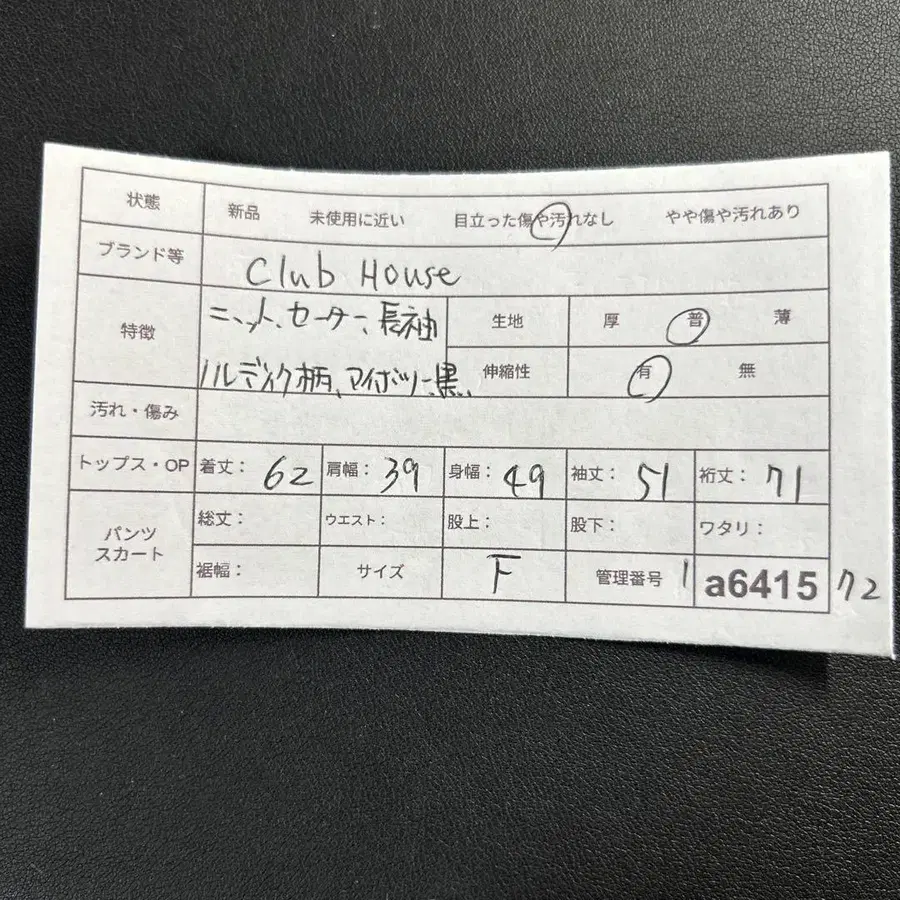 状態 新品 未使用に近い 目立った傷や汚れなし やや傷や汚れあり
ブランド等 Club House
特徴 ニット、セーター、長袖 生地 厚 普 薄
ノルディック柄、アイボリー、黒、 伸縮性 有 無
汚れ・傷み
トップス・OP 着丈: 62 肩幅: 39 身幅: 49 袖丈: 51 裄丈: 71
パンツ スカート 総丈: ウエスト: 股上: 股下: ワタリ:
裾幅: サイズ F 管理番号 1 a6415 72